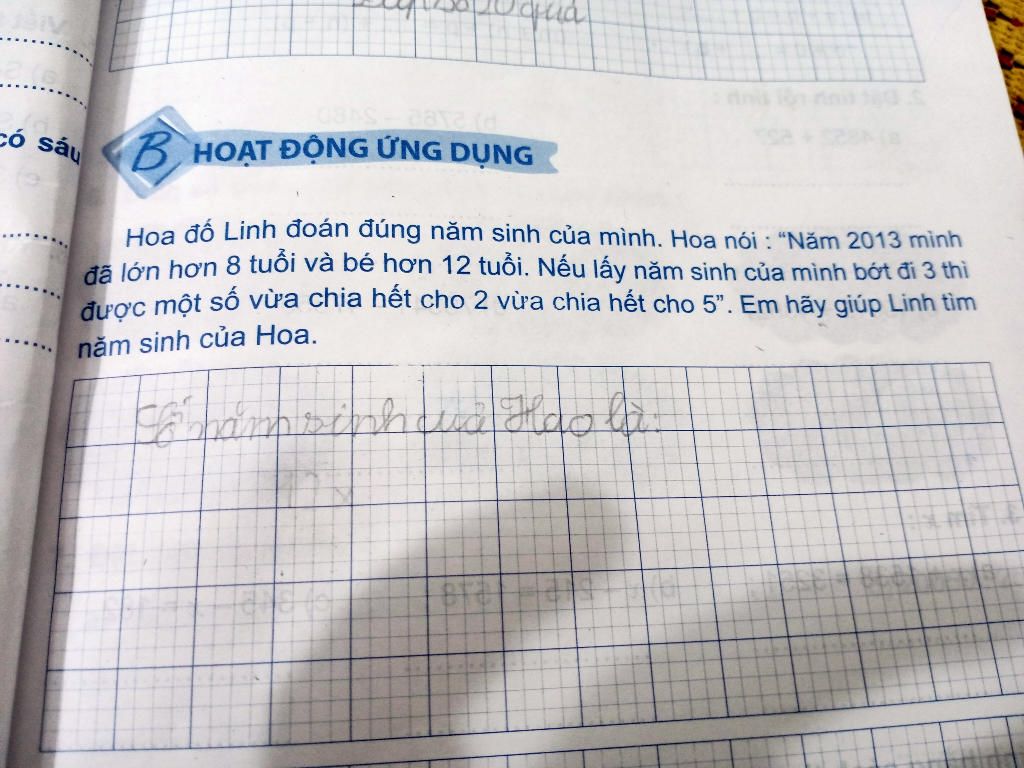 Đáp số 10 quả
có sáu
B HOẠT ĐỘNG ỨNG DỤNG
Hoa đố Linh đoán đúng năm sinh của mình. Hoa nói : “Năm 2013 mình
đã lớn hơn 8 tuổi và bé hơn 12 tuổi. Nếu lấy năm sinh của mình bớt đi 3 thì
được một số vừa chia hết cho 2 vừa chia hết cho 5”. Em hãy giúp Linh tìm
năm sinh của Hoa.
Số năm sinh của Hao là: